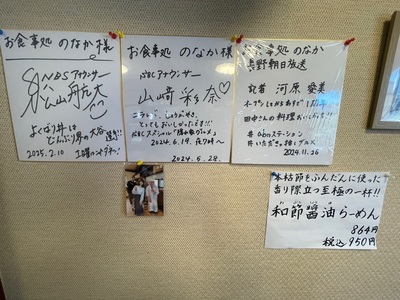 お食事処 のなか様
NBSアナウンサー
松山航大
よくばり丼は
どんぶり界の大谷選手!!
2025.2.10
お食事処 のなか様
SBCアナウンサー
山﨑彩奈
とってもおいしかったです!!
SBCスペシャル
2024.6.19.夜7時〜
2024.5.28.
お食事処 のなか
長野朝日放送
記者 河原 愛美
田中さんの料理
# abnステーション
# いただきます推しグルメ
2024.11.26
本枯節をふんだんに使った
香り際立つ至極の一杯!!
和節醤油らーめん
864円
税込950円